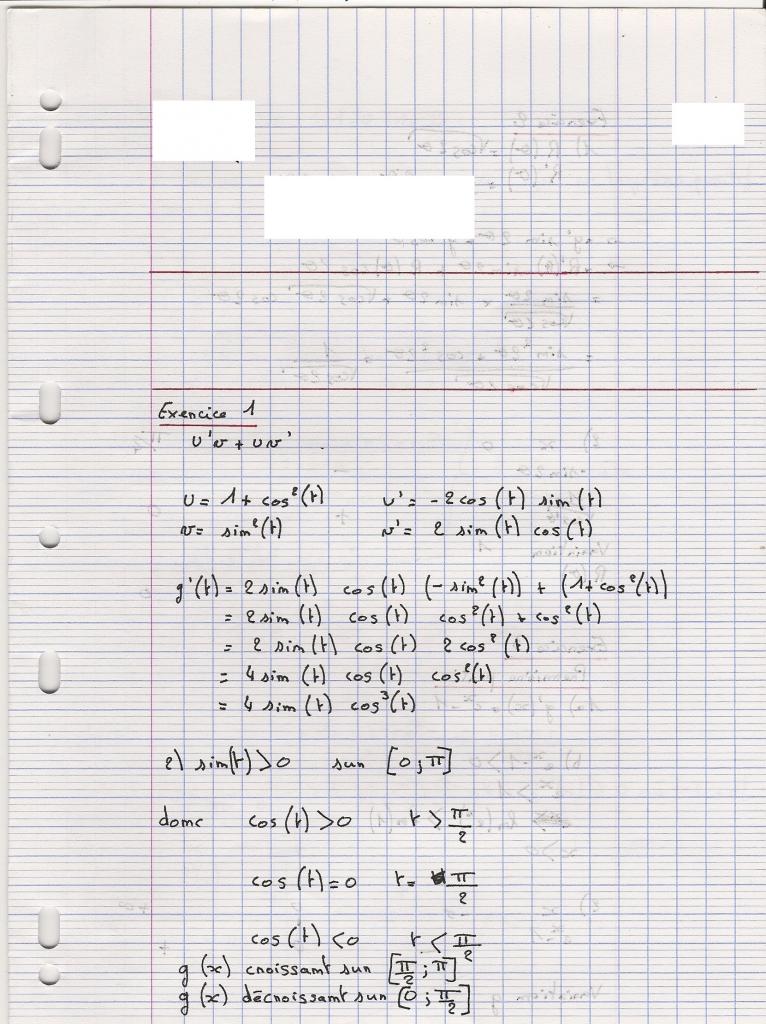 Exercice 1
U'v + Uv'
U = 1 + cos²(t) U' = -2 cos(t) sin(t)
v = sin²(t) v' = 2 sin(t) cos(t)
g'(t) = 2 sin(t) cos(t) (- sin²(t)) + (1 + cos²(t))
= 2 sin(t) cos(t) cos²(t) + cos²(t)
= 2 sin(t) cos(t) 2 cos²(t)
= 4 sin(t) cos(t) cos²(t)
= 4 sin(t) cos³(t)
2) sin(t) > 0 sur [0 ; π]
donc cos(t) > 0 t > π/2
cos(t) = 0 t = π/2
cos(t) < 0 t < π/2
g(x) croissant sur [π/2 ; π]
g(x) décroissant sur [0 ; π/2]